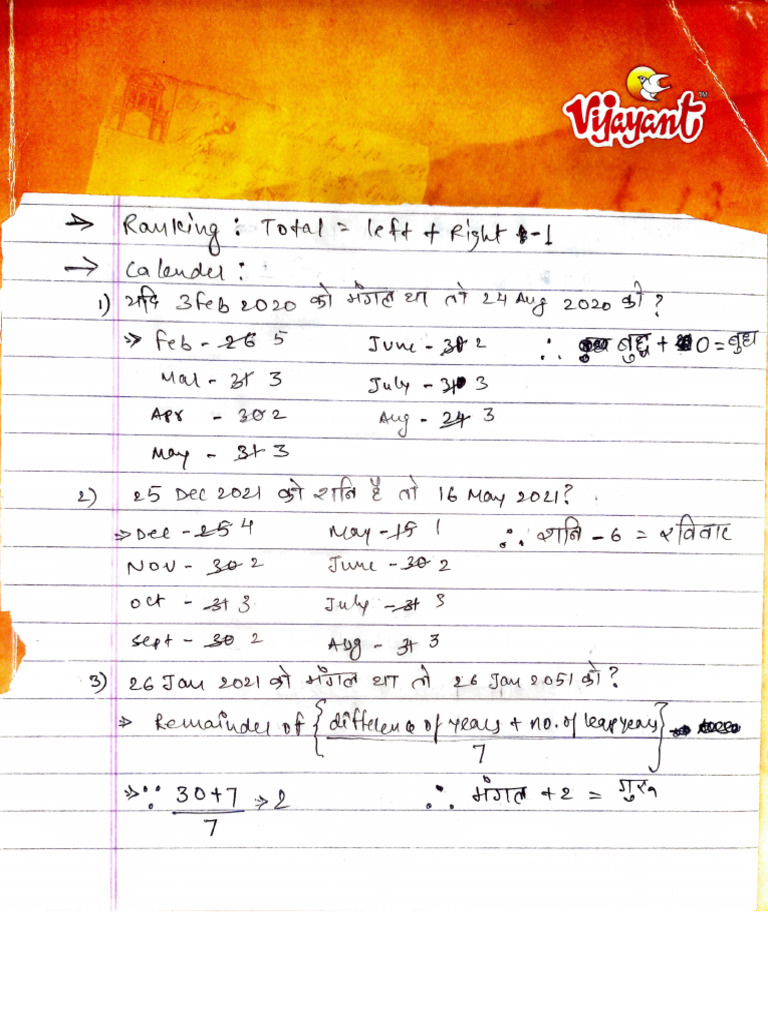 Vijayant TM
→ Ranking : Total = left + Right -1
→ Calender :
1) यदि 3 Feb 2020 को मंगल था तो 24 Aug 2020 को ?
⇒ Feb - 26 5 June - 30 2 ∴ बुद्ध + 0 = बुद्ध
Mar - 31 3 July - 31 3
Apr - 30 2 Aug - 24 3
May - 31 3
2) 25 Dec 2021 को शनि है तो 16 May 2021 ?
⇒ Dec - 25 4 May - 15 1 ∴ शनि - 6 = रविवार
Nov - 30 2 June - 30 2
Oct - 31 3 July - 31 3
Sept - 30 2 Aug - 31 3
3) 26 Jan 2021 को मंगल था तो 26 Jan 2051 को ?
⇒ Remainder of { difference of years + no. of leap years }
7
⇒ ∵ 30+7 ⇒ 2 ∴ मंगल + 2 = गुरु
7